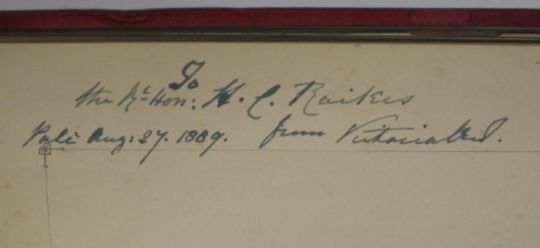 To
the Rt Hon: H. C. Raikes
Palè Aug: 27. 1889. from Victoria R I.